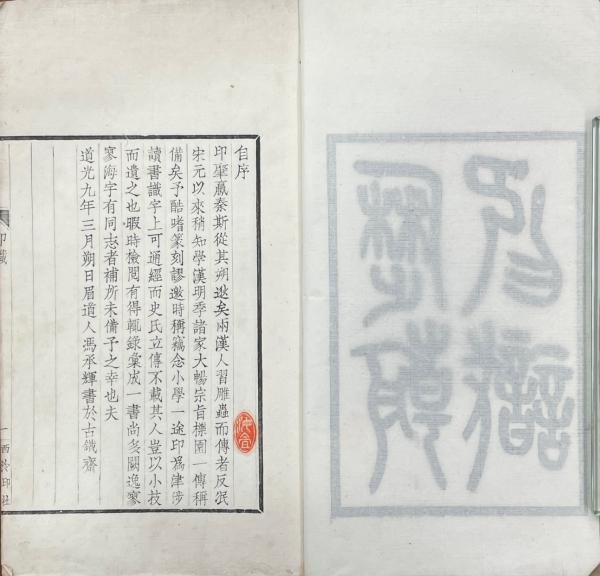 自序
印肇嬴秦斯從其朔邈矣兩漢人習雕蟲而傳者反泯
宋元以來稍知學漢明季諸家大暢宗旨櫟園一傳稱
備矣予酷嗜篆刻謬邀時稱竊念小學一途印爲津涉
讀書識字上可通經而史氏立傳不載其人豈以小技
而遺之也暇時檢閱有得輒錄彙成一書尚多闕逸寥
寥海宇有同志者補所未備予之幸也夫
道光九年三月朔日眉道人馮承輝書於古鐵齋
印識
一 西泠印社